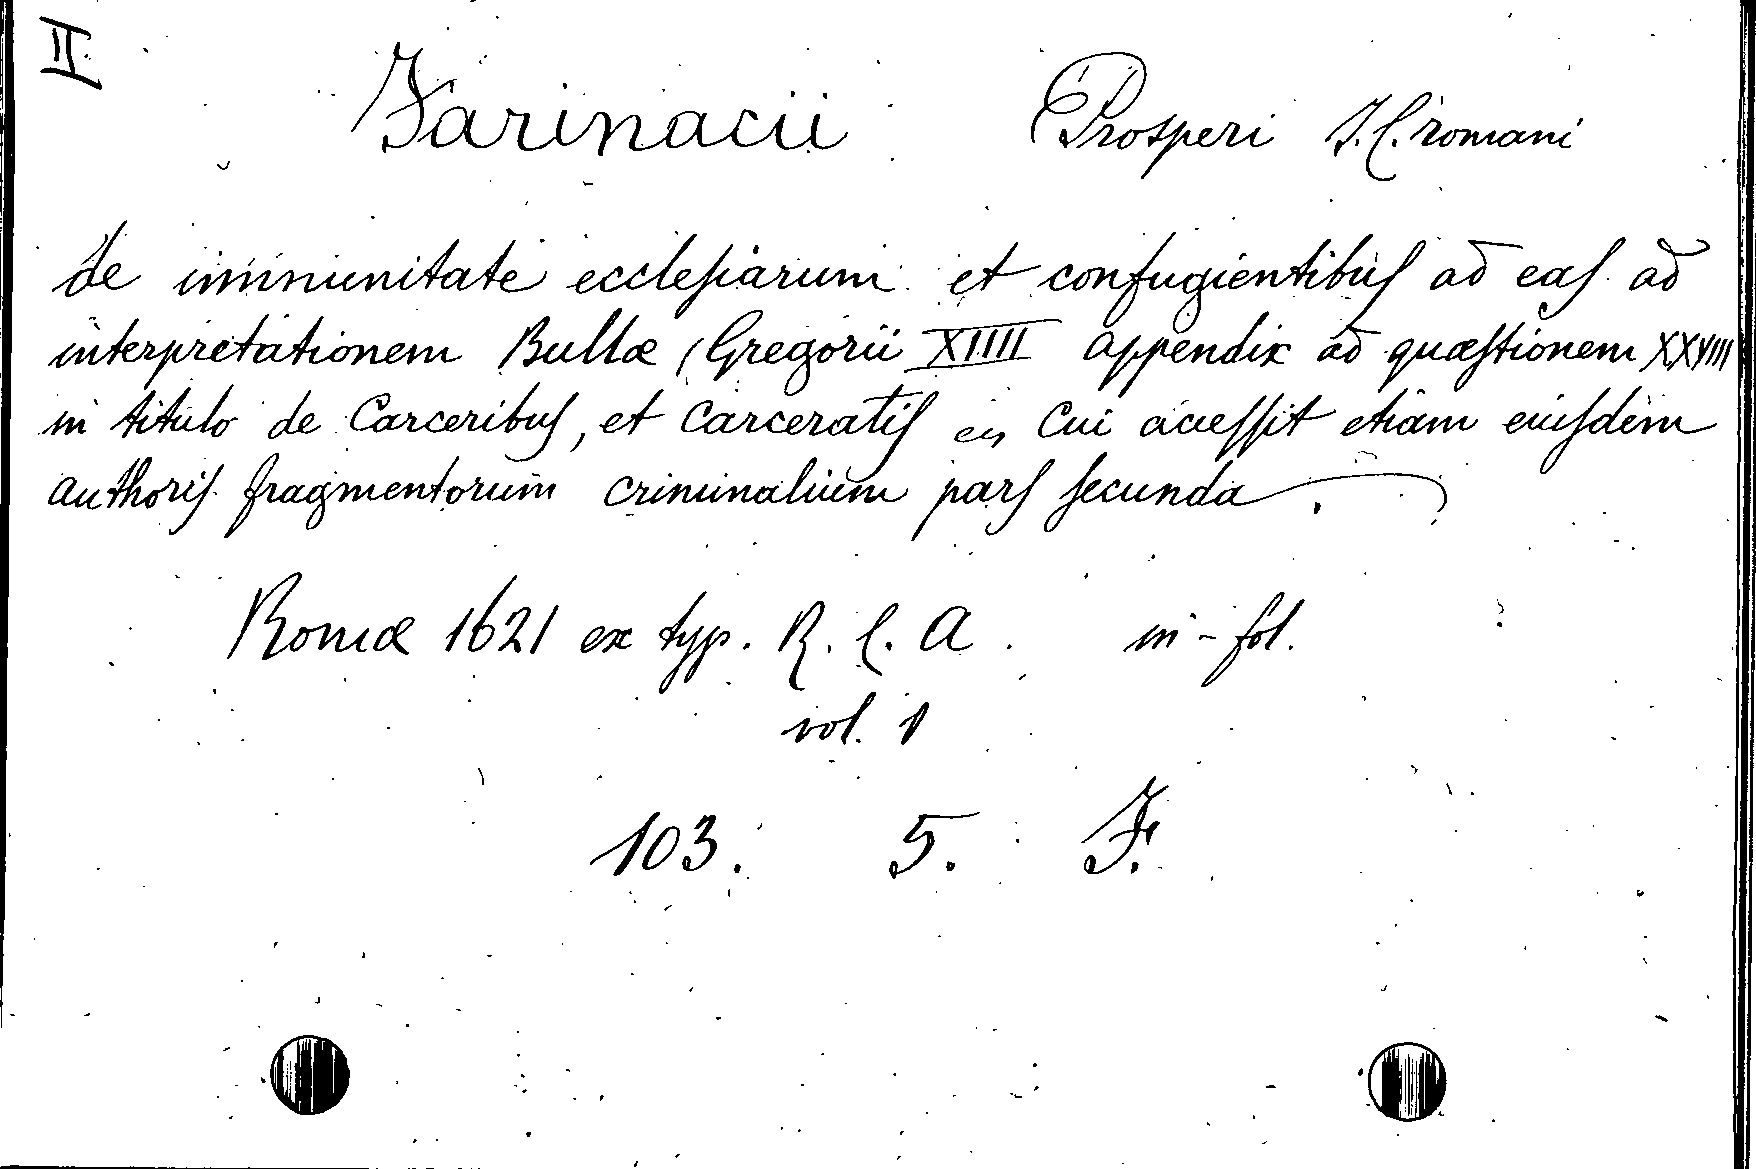 II
Farinacii Prosperi J. C. romani
de immunitate ecclesiarum et confugientibus ad eas ad
interpretationem Bullæ Gregorii XIIII appendix ad quæstionem XXVIII
in titulo de Carceribus, et carceratis Cui accessit etiam eiusdem
authoris fragmentorum criminalium pars secunda.
Romæ 1621 ex typ. R. C. A. in-fol.
vol. 1
103. 5. F.